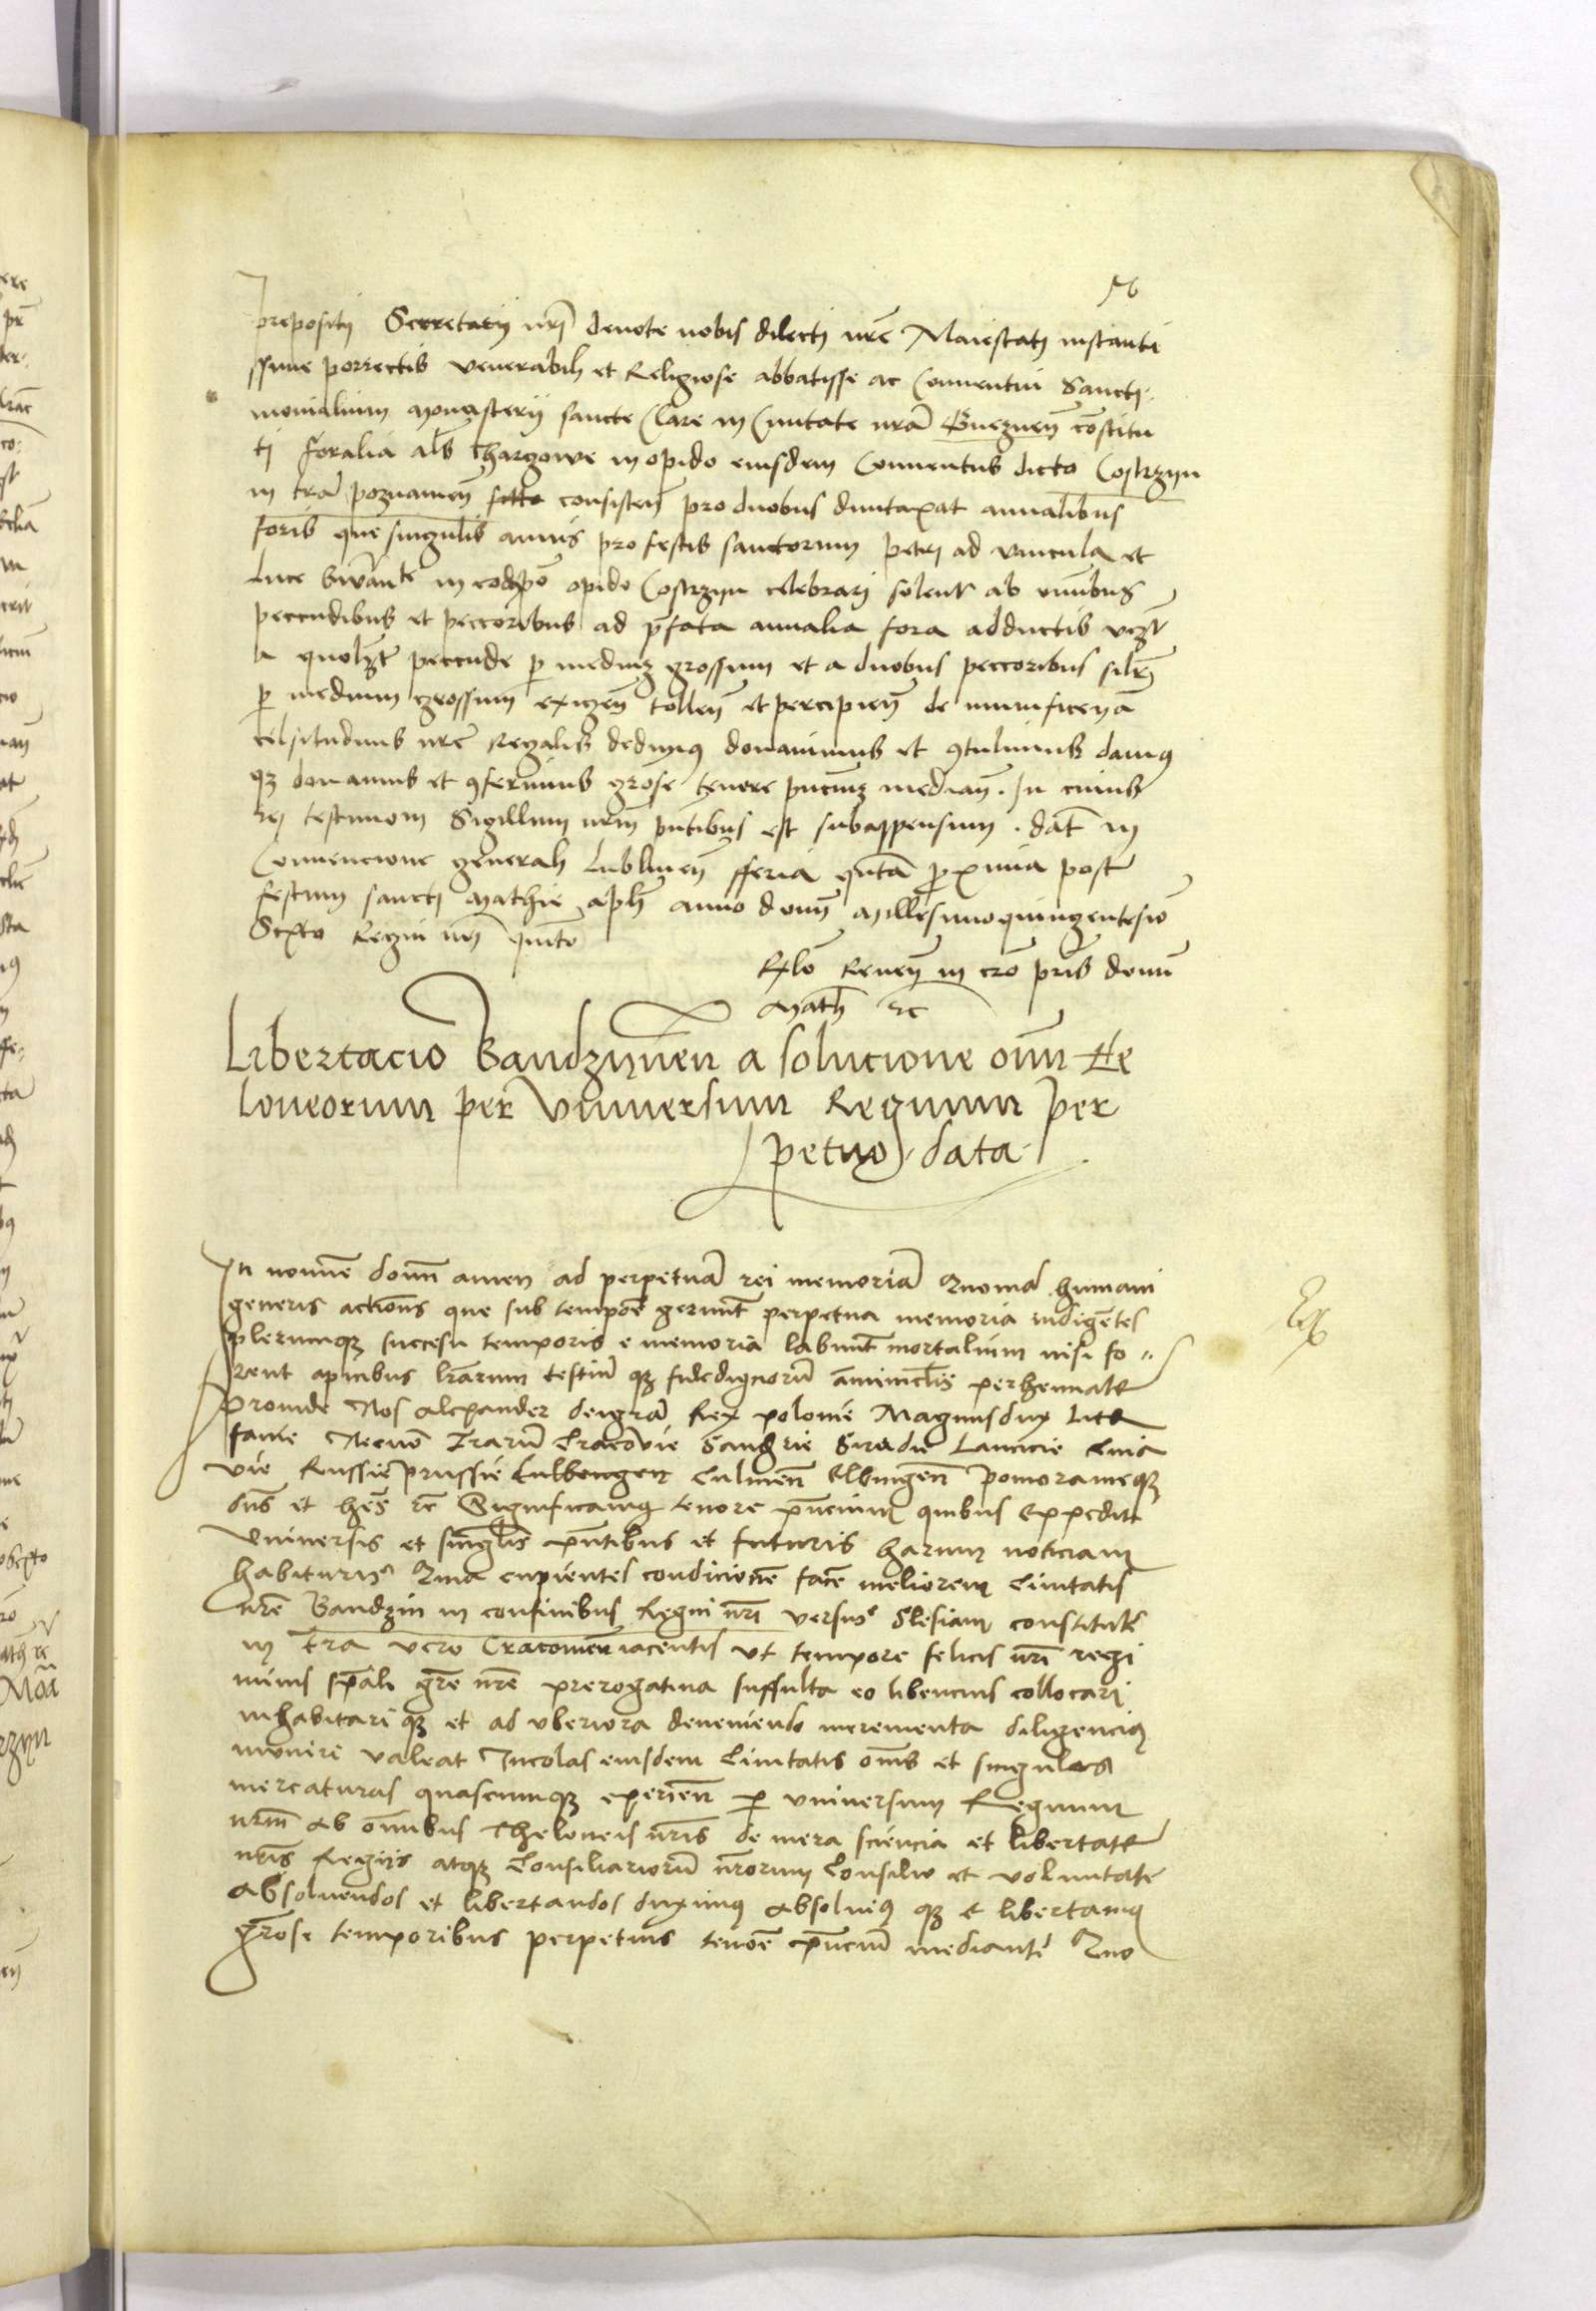 prepositi Secretarij nri devote nobis dilecti nre Maiestati instanti
ssime porrectis venerabili et Religiose abbatisse ac Conventui Sancti-
monialium monasterij sancte Clare in Civitate nra Gneznen constitu
ti foralia als thargowe in opido eiusdem Conventus dicto Costrzyn
in tra poznanien consisten pro duobus duntaxat annalibus
foris que singulis annis pro festis sanctorum petri ad vincula et
Luce Ewante in eodem opido Costrzyn celebrari solent ab omnibus
peccudibus et peccoribus ad pfata annalia fora adductis vczt
a qualzt peccude p mediu grossum et a duobus peccoribus silr
p medium grossum exigen tollen et percipien de munificencia
celsitudinis nre Regalis dedimus donavimus et 9tulimus damus
qz donamus et 9ferimus grose tenore pncium median. In cuius
rei testimom Sigillum nrm pntibus est subappensum. dat in
Convencione generali Lublinen fferia qnta pxima post
festum sancti Mathie apli anno domi Millesimoquingentesio
Sexto Regni nri quinto
Rlo Reven in cro pris domi
Math etc
Libertacio Bandzynen a solucione omi te
loneorum per universum Regnum per
petuo data
In nomine domi amen ad perpetua rei memoria Quoniad humani
generis actiones que sub tempore gerunt perpetua memoria indigentes
plerumqz successu temporis e memoria labunt mortalium nisi fo-
rent apicibus lrarum testiu qz fidedignoru aminiclis perhennate
Proinde Nos Alexander dei gra Rex polonie Magnus dux Litt
fanie Necno Trraru Cracovie Sandrie Siradie Lancicie Cuia
vie Russie prussie Culmen Elbingen pomoranieqz
dns et hes etc Significamus tenore pncium quibus expedit
Universis et singlis pntibus et futuris harum noticiam
habituris Quia cupientes condicione face meliorem Civitatis
nre Bandzin in confinibus Regni nri versus Slesiam constitute
in tra vero Cracovien iacentis ut tempore felicis nri regi
minis spali gre nre prerogativa suffulta eo libencius collocari
inhabitari qz et ad uberiora deveniendo incrementa diligencius
munire valeat Incolas eiusdem Civitatis omes et singulos
mercaturas quascumqz exercen p universum Regnum
nrm ab omibus Theloneis nris de mera sciencia et libertate
nris Regijs atqz Consiliarioru nrorum Consilio et voluntate
Absolvendos et libertandos duximus absolvimus qz et libertamus
grose temporibus perpetuis tenore pncium mediante Quo